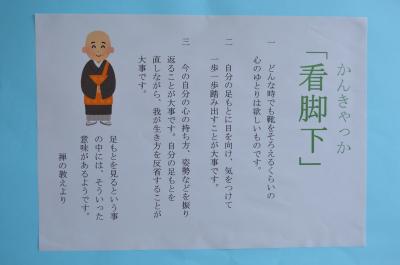 かんきゃっか
「看脚下」
一 どんな時でも靴をそろえるくらいの
心のゆとりは欲しいものです。
二 自分の足もとに目を向け、気をつけて
一歩一歩踏み出すことが大事です。
三 今の自分の心の持ち方、姿勢などを振り
返ることが大事です。自分の足もとを
直しながら、我が生き方を反省することが
大事です。
足もとを見るという事
の中には、そういった
意味があるようです。
禅の教えより